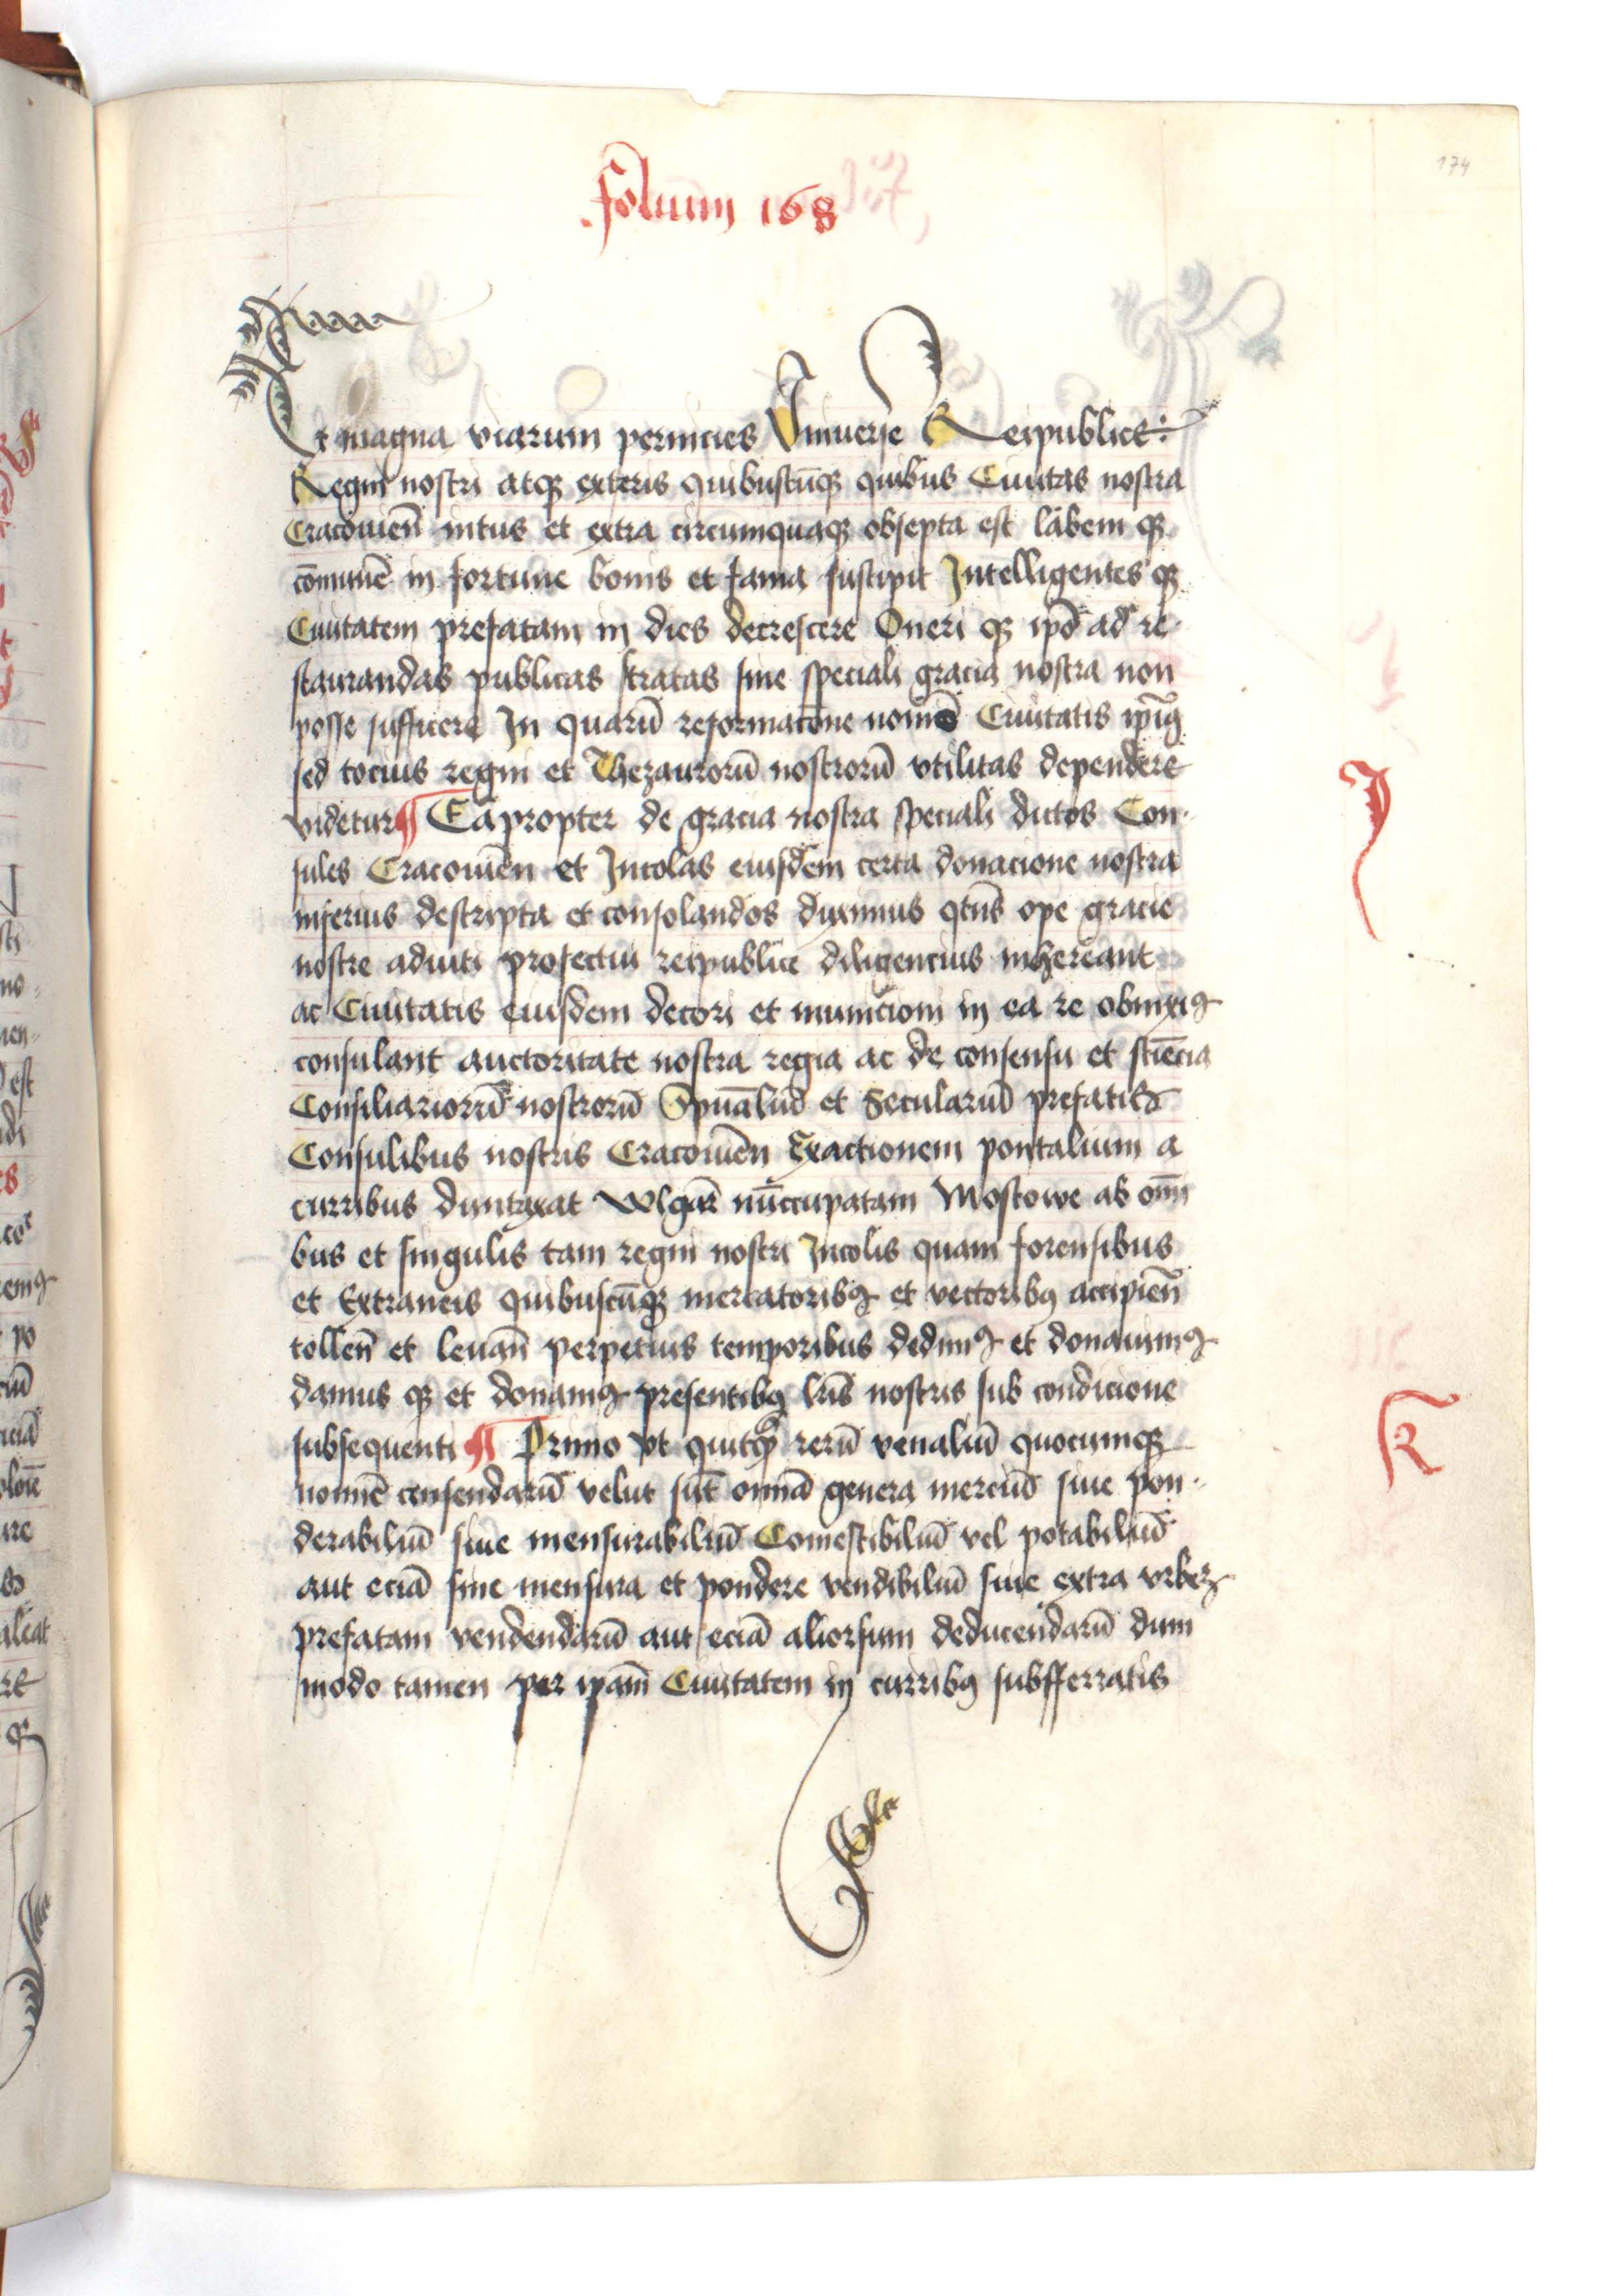 folium 168
174
Et magna viarum pernicies Vniuerse Reipublice
Regni nostri atqꝫ exteris quibuscūqꝫ quibus Ciuitas nostra
Cracouien̄ intus et extra circumquaqꝫ obsepta est labem qꝫ
cōmunē in fortune bonis et fama suscipit Intelligentes qꝫ
Ciuitatem prefatam in dies decrescere Oneri qꝫ ip̄o ad re
staurandas publicas stratas sine speciali gracia nostra non
posse sufficere In quarū reformacōne Ciuitatis
sed tocius regni et Thezaurorū nostrorū vtilitas dependere
videtur ¶ Eapropter de gracia nostra speciali dictos Con
sules Cracouien̄ et Incolas eiusdem certa donacione nostra
inferius descripta et consolandos duximus qten̄s ope gracie
nostre adiuti profectui reipublice diligencius inhereant
ac Ciuitatis eiusdem decori et municioni in ea re obnixiꝰ
consulant auctoritate nostra regia ac de consensu et sciēcia
Consiliariorū nostrorū Spūaliū et Seculariū prefatis
Consulibus nostris Cracouien̄ Exactionem pontalium a
curribus duntaxat wlgar̄ nūccupatam Mostowe ab om̄i
bus et singulis tam regni nostri Incolis quam forensibus
et Extraneis quibuscūqꝫ mercatoribꝰ et vectoribꝰ accipien̄
tollen̄ et leuan̄ perpetuis temporibus dedimꝰ et donauimꝰ
damus qꝫ et donamꝰ presentibꝰ lr̄is nostris sub condicione
subsequenti ¶ Primo vt quitqꝫ rerū venaliū quocumqꝫ
nomīe censendarū velut sūt omnia genera merciū siue pon
derabiliū siue mensurabiliū Comestibiliū vel potabiliū
aut eciā sine mensura et pondere vendibiliū siue extra vrbeꝫ
prefatam vendendarū aut eciā aliorsum deducendarū dum
modo tamen per ip̄am Ciuitatem in curribꝰ subfferratis
J
K